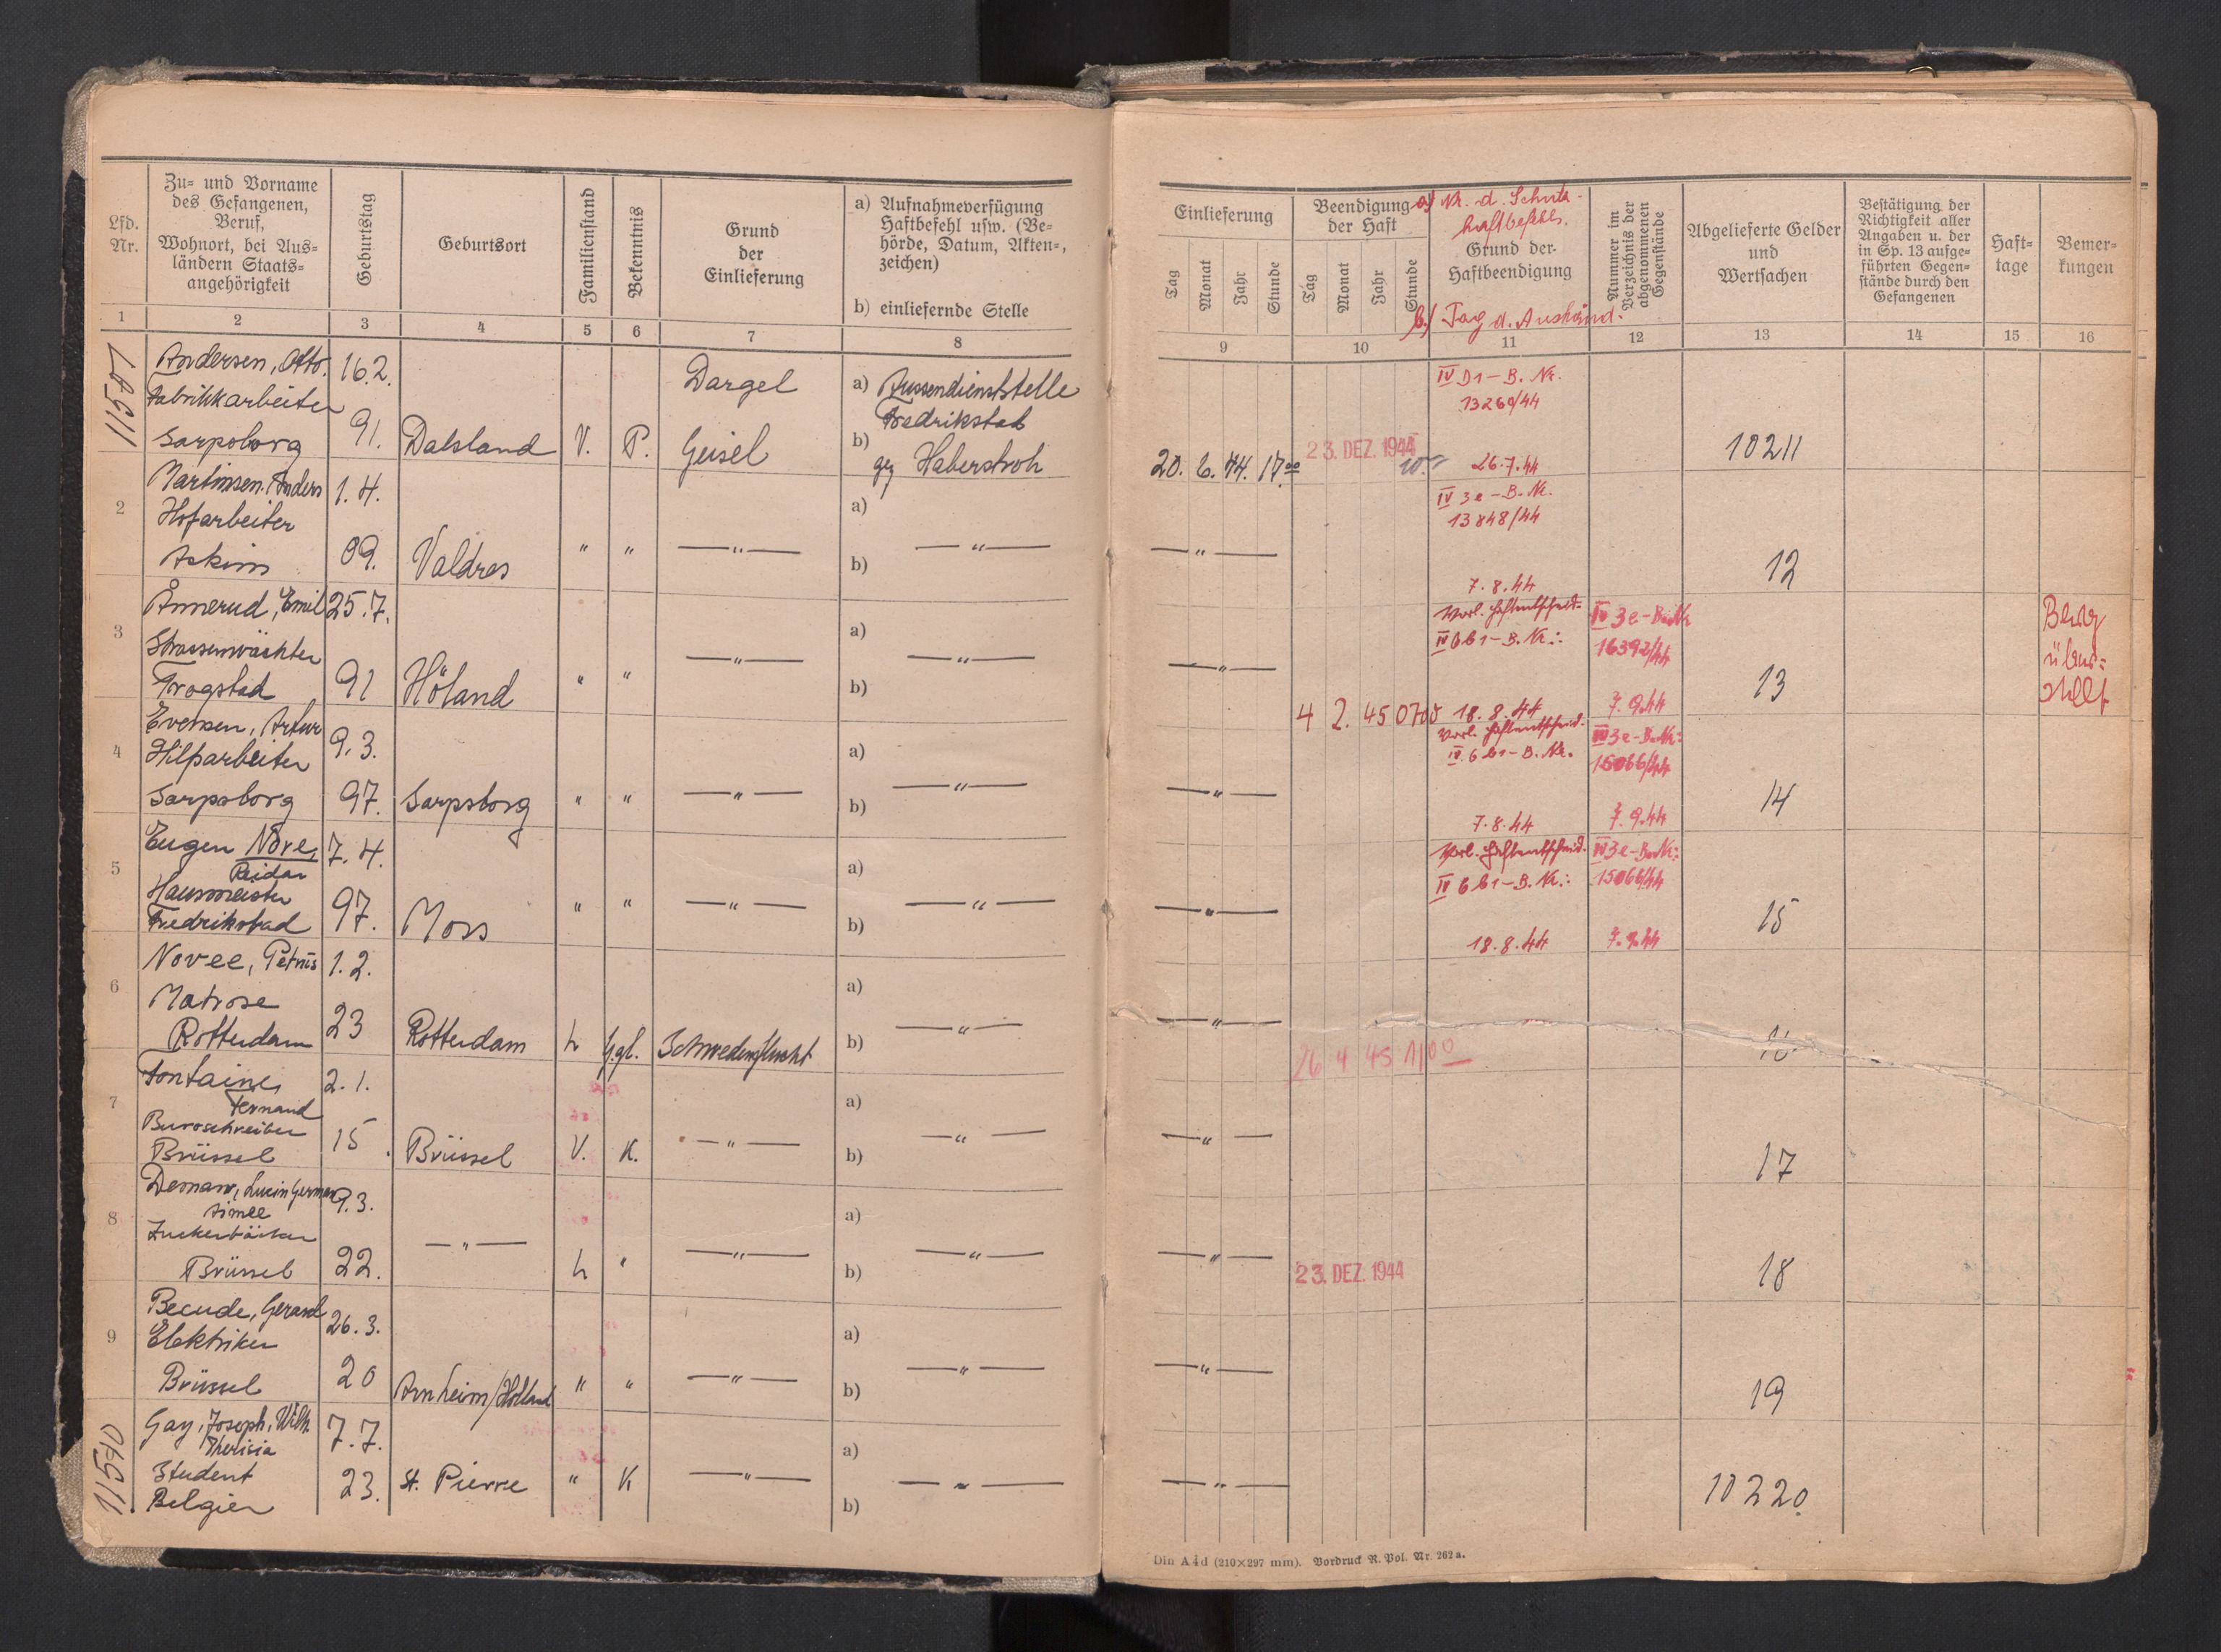 Lfd. Nr.
Zu= und Vorname
des Gefangenen,
Beruf,
Wohnort, bei Aus=
ländern Staats=
angehörigkeit
Geburtstag
Geburtsort
Familienstand
Bekenntnis
Grund
der
Einlieferung
a) Aufnahmeverfügung
Haftbefehl usw. (Be=
hörde, Datum, Akten=,
zeichen)
b) einliefernde Stelle
1 2 3 4 5 6 7 8
11501
Andersen, Otto. 16.2. Dargel a) Aussendienststelle
Fabrikkarbeiter Fredrikstad
Sarpsborg 91. Dalsland V. P. Geisel b) gez Haberstroh
2 Martinsen. Anders 1.4. a)
Hofarbeiter
Askim 09. Valdres " " —"— —"— b)
3 Ånnerud, Emil 25.7. a)
Strassenwächter
Trogstad 91 Höland " " —"— —"— b)
4 Evensen, Artur 9.3. a)
Hilfsarbeiter
Sarpsborg 97. Sarpsborg " " —"— —"— b)
5 Eugen Nore, 7.4. a)
Reidar
Hausmeister
Fredrikstad 97. Moss " " —"— —"— b)
6 Novee, Petrus 1.2. a)
Matrose
Rotterdam 23 Rotterdam L Ggl. Schwedenflucht —"— b)
7 Fontaine, 2.1. a)
Fernand
Buroschreiber
Brüssel 15. Brüssel V. K. —"— —"— b)
8 Lucien German 9.3. a)
Aimee
Zuckerbäcker
Brüssel 22. —"— L " —"— —"— b)
9 Becude, Gerard 26.3. a)
Elektriker
Brüssel 20 Arnheim/Holland " " —"— —"— b)
11510
Gay, Joseph, Wilh. 7.7. a)
Theresia
Student 23. St. Pierre " K —"— —"—
Belgier b)
Einlieferung
Tag Monat Jahr Stunde
Beendigung
der Haft
Tag Monat Jahr Stunde
a) Nr. d. Schutz-
haftbefehls.
Grund der
Haftbeendigung
b) Tag d. Aushänd.
Nummer im
Verzeichnis der
abgenommenen
Gegenstände
Abgelieferte Gelder
und
Wertsachen
Bestätigung der
Richtigkeit aller
Angaben u. der
in Sp. 13 aufge=
führten Gegen=
stände durch den
Gefangenen
Haft=
tage
Bemer=
kungen
9 10 11 12 13 14 15 16
IV D1-B. Nr.
13260/44
20. 6. 44. 17.00 23. DEZ. 1944 26.7.44 10211
IV 3e-B. Nr.
13848/44
—"— 12
7.8.44
Vorl. Haftentscheid- IV 3e-B.Nr Berg
IV 6b1-B. Nr.: 16392/44 über=
—"— 13 stellt
4 2. 45 0700 18.8.44 7.9.44
Vorl. Haftentscheid. IV 3e-B.Nr:
IV 6b1-B. Nr. 15066/44
—"— 14
7.8.44 7.9.44
Vorl. Haftentscheid. IV 3e-B.Nr:
IV 6b1-B. Nr.: 15066/44
—"— 15
18.8.44 7.9.44
—"— 16
26 4 45 1100
—"— 17
—"— 23. DEZ. 1944 18
—"— 19
—"— 10220.
Din A4d (210×297 mm). Vordruck R. Pol. Nr. 262a.